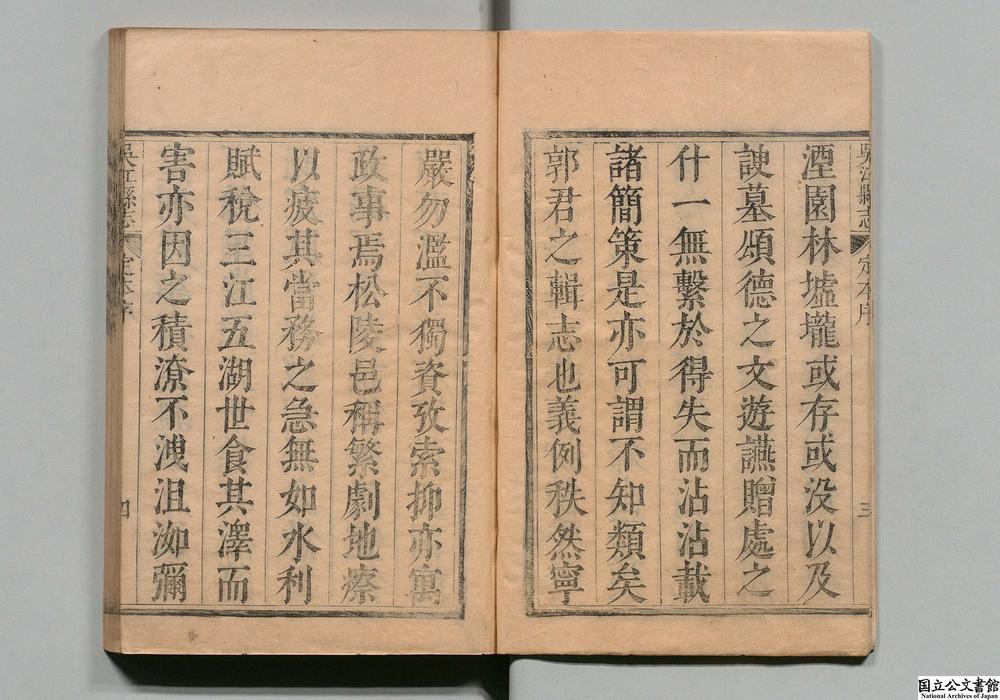 吳江縣志 定本序 三
湮園林墟壠或存或没以及
諛墓頌德之文遊讌贈處之
什一無繫於得失而沾沾載
諸簡策是亦可謂不知類矣
郭君之輯志也義例秩然寧
嚴勿濫不獨資攷索抑亦寓
政事焉松陵邑稱繁劇地瘵
以疲其當務之急無如水利
賦稅三江五湖世食其澤而
害亦因之積潦不洩沮洳彌
吳江縣志 定本序 四
国立公文書館
National Archives of Japan